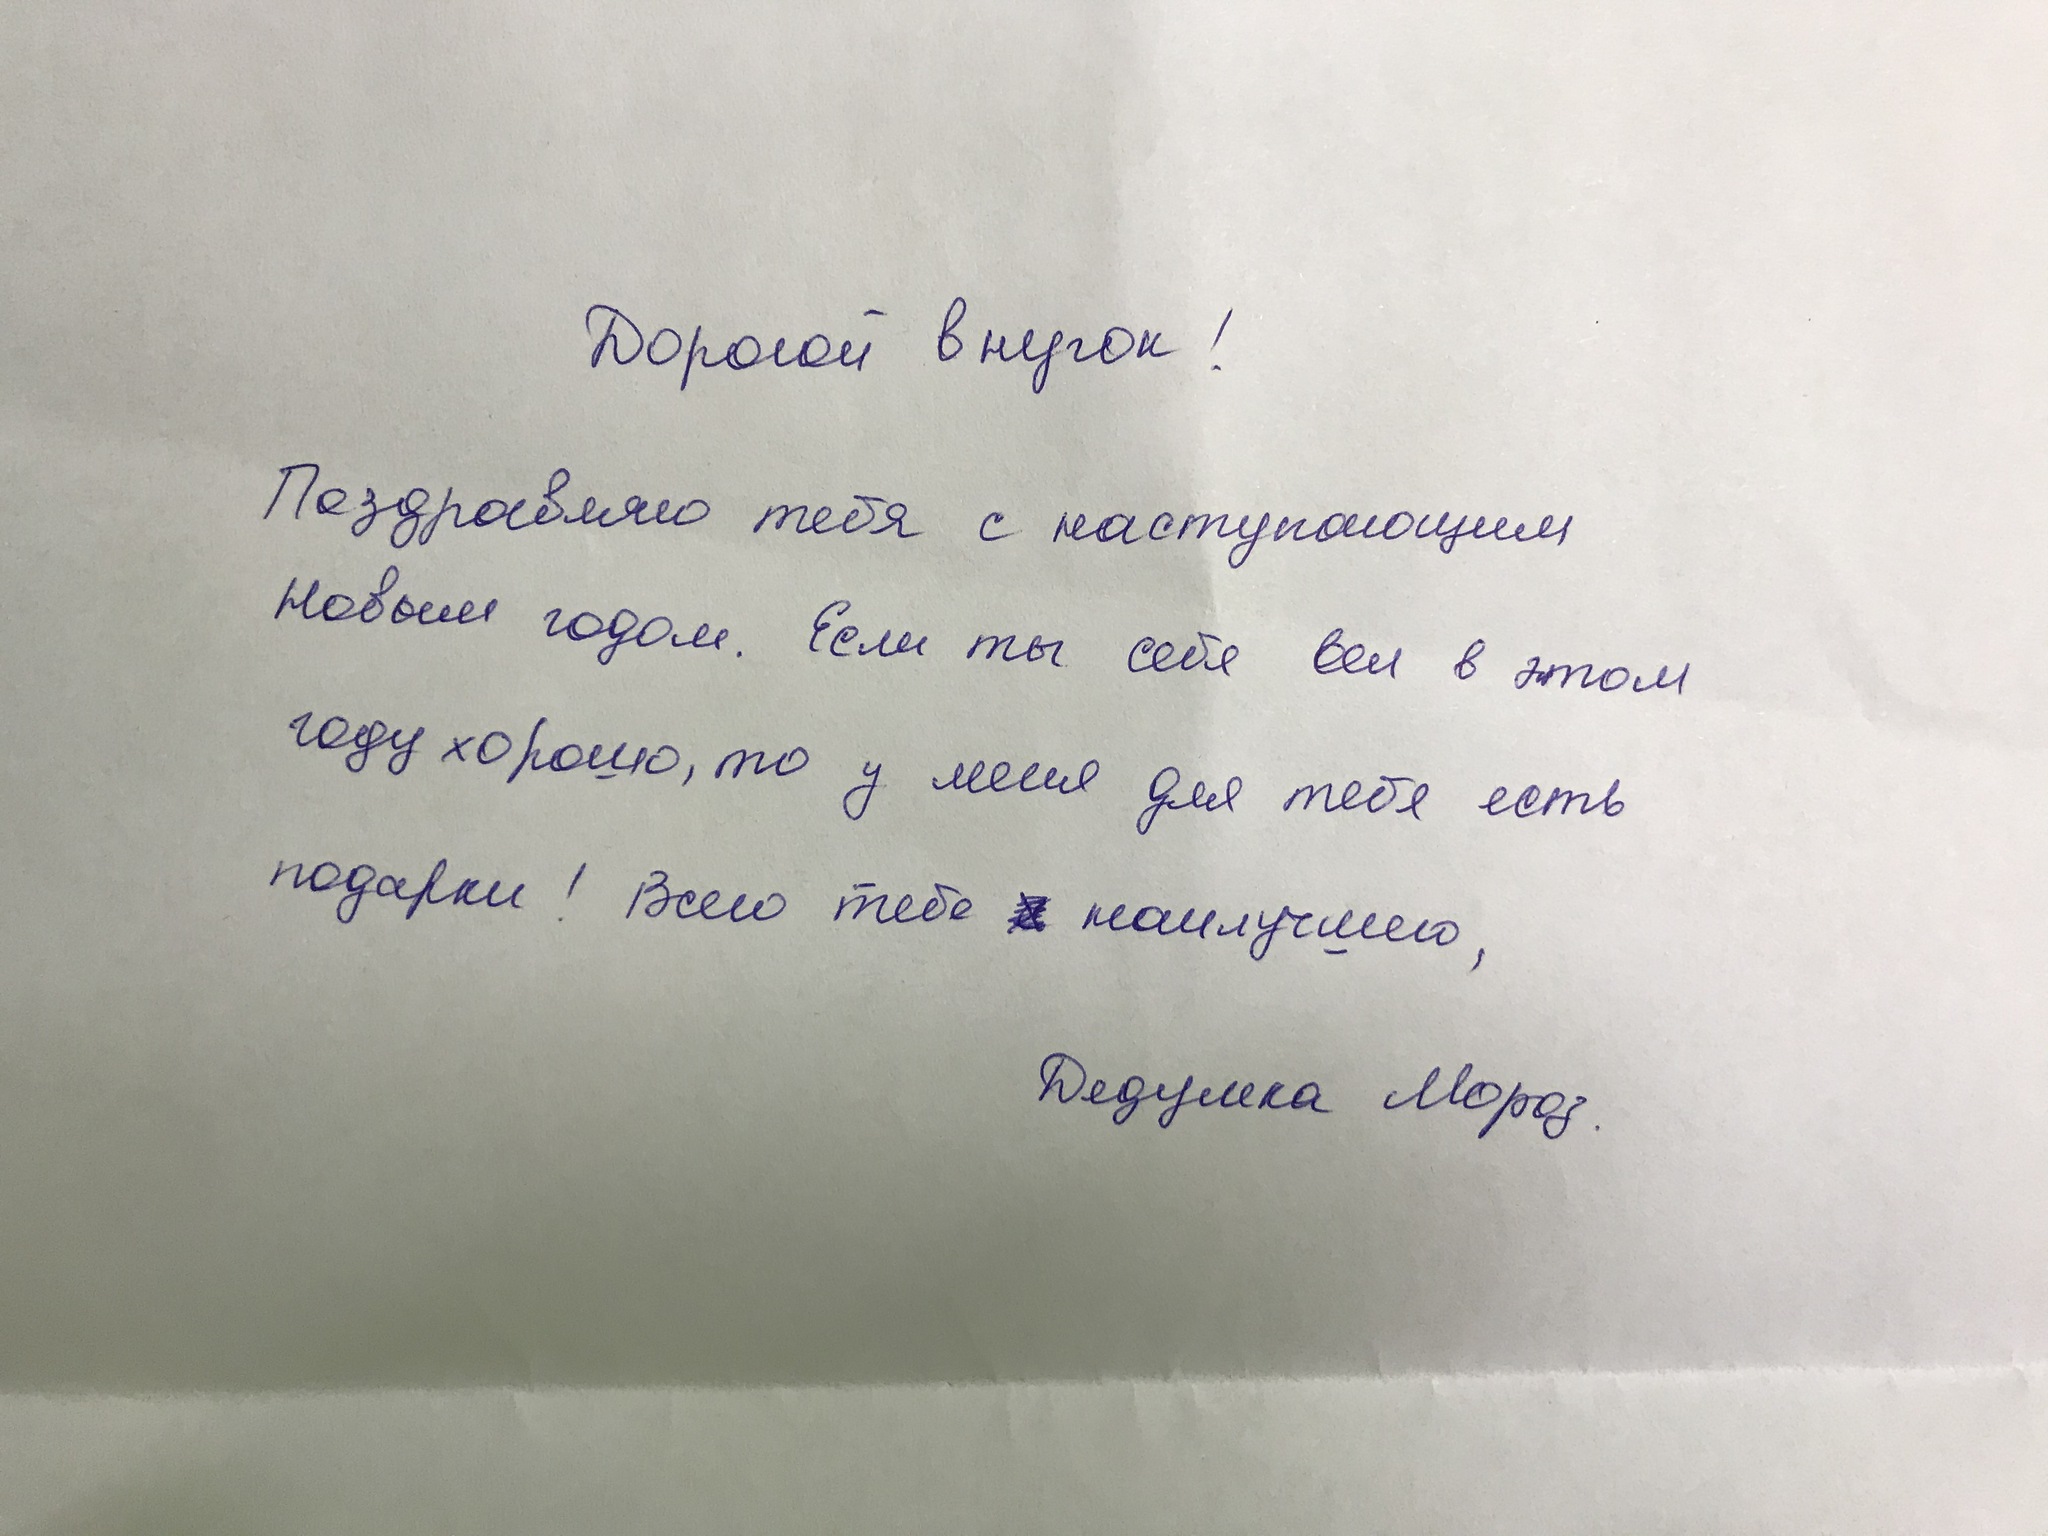 Дорогой внучок!
Поздравляю тебя с наступающим
Новым годом. Если ты себя вел в этом
году хорошо, то у меня для тебя есть
подарки! Всего тебе наилучшего,
Дедушка Мороз.